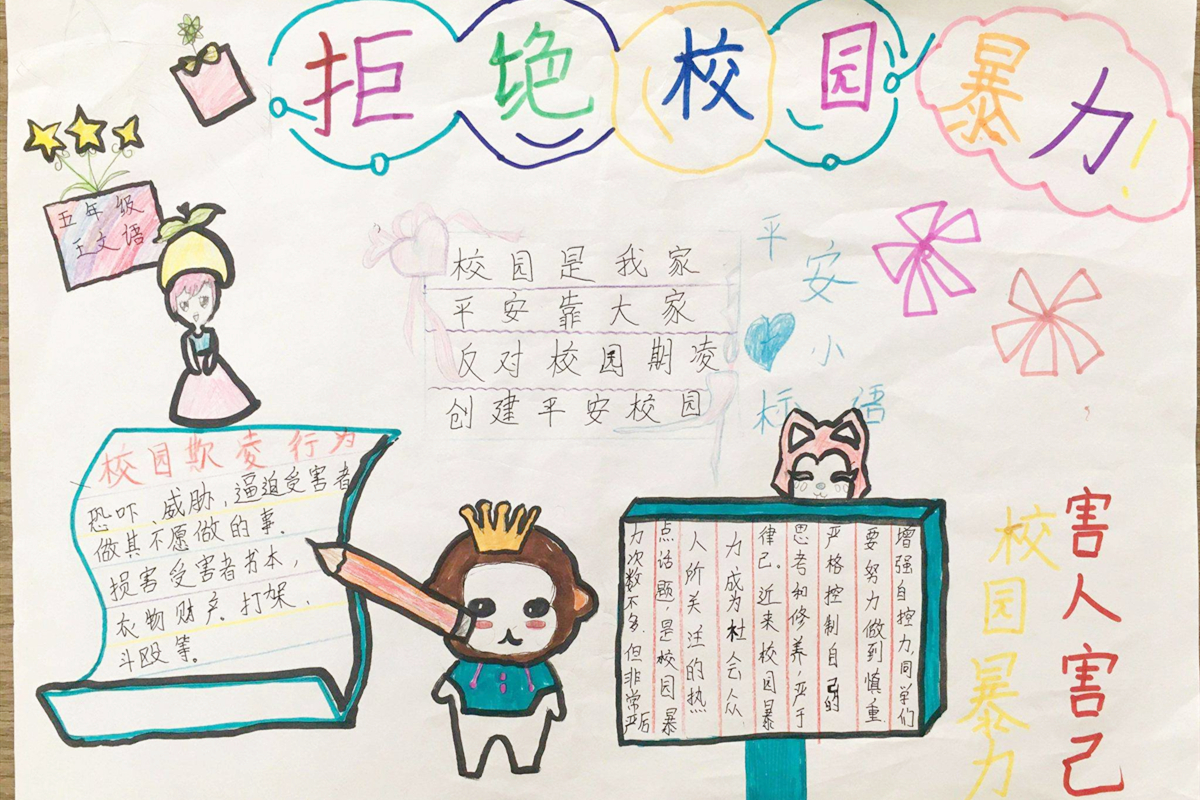 拒绝校园暴力!
五年级
王文语
校园是我家
平安靠大家
反对校园期凌
创建平安校园
平安小
标语
校园欺凌行为
恐吓、威胁,逼迫受害者
做其不愿做的事、
损害受害者书本,
衣物财产、打架、
斗殴等。
增强自控力,同学们
要努力做到慎重
严格控制自己的
思考和修养,严于
律己。近来校园暴
力成为社会众
人所关注的热
点话题,是校园暴
力次数不多.但非常严厉
校园暴力
害人害己